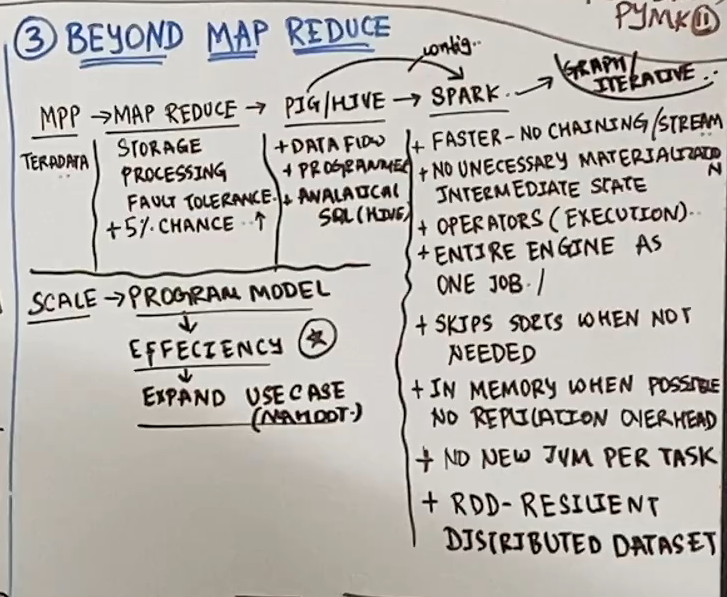 PYMK 11
3 BEYOND MAP REDUCE
config..
MPP → MAP REDUCE → PIG/HIVE → SPARK. → GRAPH/
ITERATIVE..
TERADATA
STORAGE
PROCESSING
FAULT TOLERANCE.
+5% CHANCE ..↑
+ DATA FLOW
+ PROGRAMMEL
+ ANALATICAL
SQL (HIVE)
+ FASTER - NO CHAINING/STREAM
+ NO UNECESSARY MATERIALIZATIO
N
INTERMEDIATE STATE
+ OPERATORS (EXECUTION)..
+ ENTIRE ENGINE AS
ONE JOB. /
+ SKIPS SORTS WHEN NOT
NEEDED
+ IN MEMORY WHEN POSSIBLE
NO REPLICATION OVERHEAD
+ NO NEW JVM PER TASK
+ RDD - RESILIENT
DISTRIBUTED DATASET
SCALE → PROGRAM MODEL
↓
EFFECIENCY ★
↓
EXPAND USE CASE